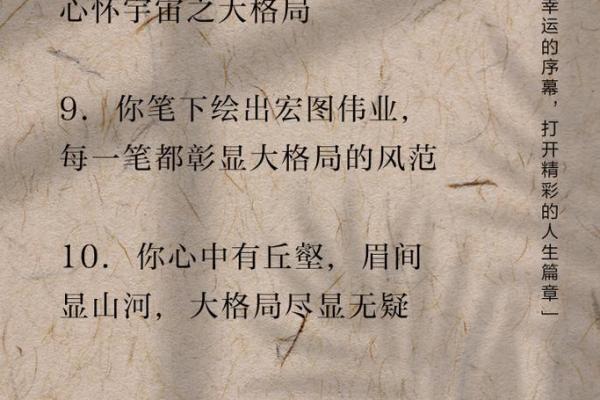 心怀宇宙之大格局
9. 你笔下绘出宏图伟业,
每一笔都彰显大格局的风范
10. 你心中有丘壑, 眉间
显山河, 大格局尽显无疑
幸运的序幕,打开精彩的人生篇章」